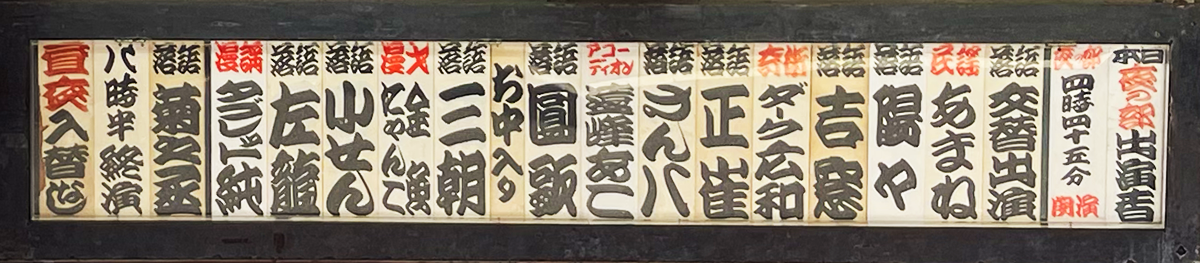 本日夜の部出演者
夜の部 四時四十五分 開演
落語 交替出演
民謡 あまね
落語
落語 吉窓
奇術 ダーク広和
落語 正雀
落語 さん八
アコーディオン 遠峰あこ
落語 圓歌
お中入り
落語 三朝
漫才 金魚 にゃんこ
落語 小せん
落語 左龍
漫謡 タブレット純
落語 菊之丞
八時半終演
昼夜入替なし